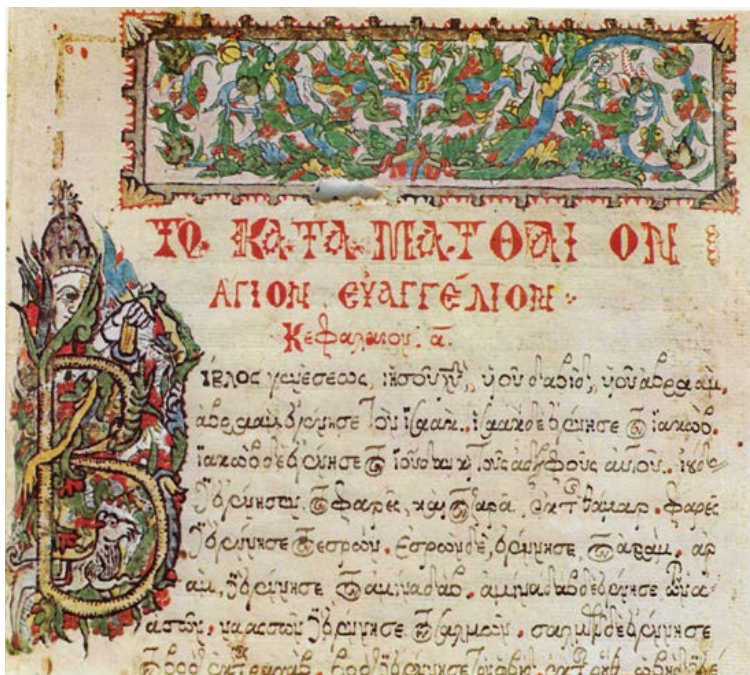 ΤΟ ΚΑΤΑ ΜΑΤΘΑΙΟΝ
ΑΓΙΟΝ ΕΥΑΓΓΕΛΙΟΝ
Κεφαλαιον. α.
ΒΙΒΛΟΣ γενέσεως, ιησοῦ χῦ, υἱοῦ δαβὶδ, υἱοῦ ἀβραάμ.
ἀβραὰμ ἐγέννησε τὸν ἰσαάκ. ἰσαὰκ δὲ ἐγέννησε τὸν ἰακώβ.
ἰακὼβ δὲ ἐγέννησε τὸν ἰούδαν κὶ τοὺς ἀδελφοὺς αὐτοῦ. ἰούδας
δὲ ἐγέννησεν τὸν φαρὲς, καὶ τὸν ζαρὰ ἐκ τῆς θάμαρ. φαρὲς
δὲ ἐγέννησε τὸν ἐσρώμ. ἐσρὼμ δὲ, ἐγέννησε τὸν ἀράμ. ἀρ
ὰμ, δὲ ἐγέννησε τὸν ἀμιναδάβ. ἀμιναδὰβ δὲ ἐγέννησε τὸν να
ασσών. ναασσὼν δὲ ἐγέννησε τὸν σαλμών. σαλμὼν δὲ ἐγέννησε
τὸν βοὸζ ἐκ τῆς ραχάβ. βοὸζ δὲ ἐγέννησε τὸν ὠβὴδ. ἐκ τῆς ροὺθ. ὠβὴδ δὲ